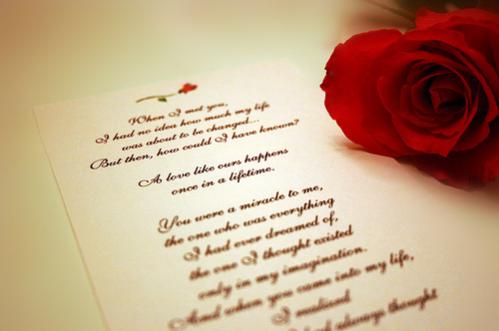 When I met you,
I had no idea how much my life
was about to be changed...
But then, how could I have known?
A love like ours happens
once in a lifetime.
You were a miracle to me,
the one who was everything
I had ever dreamed of,
the one I thought existed
only in my imagination.
And when you came into my life,
I realized
had always thought